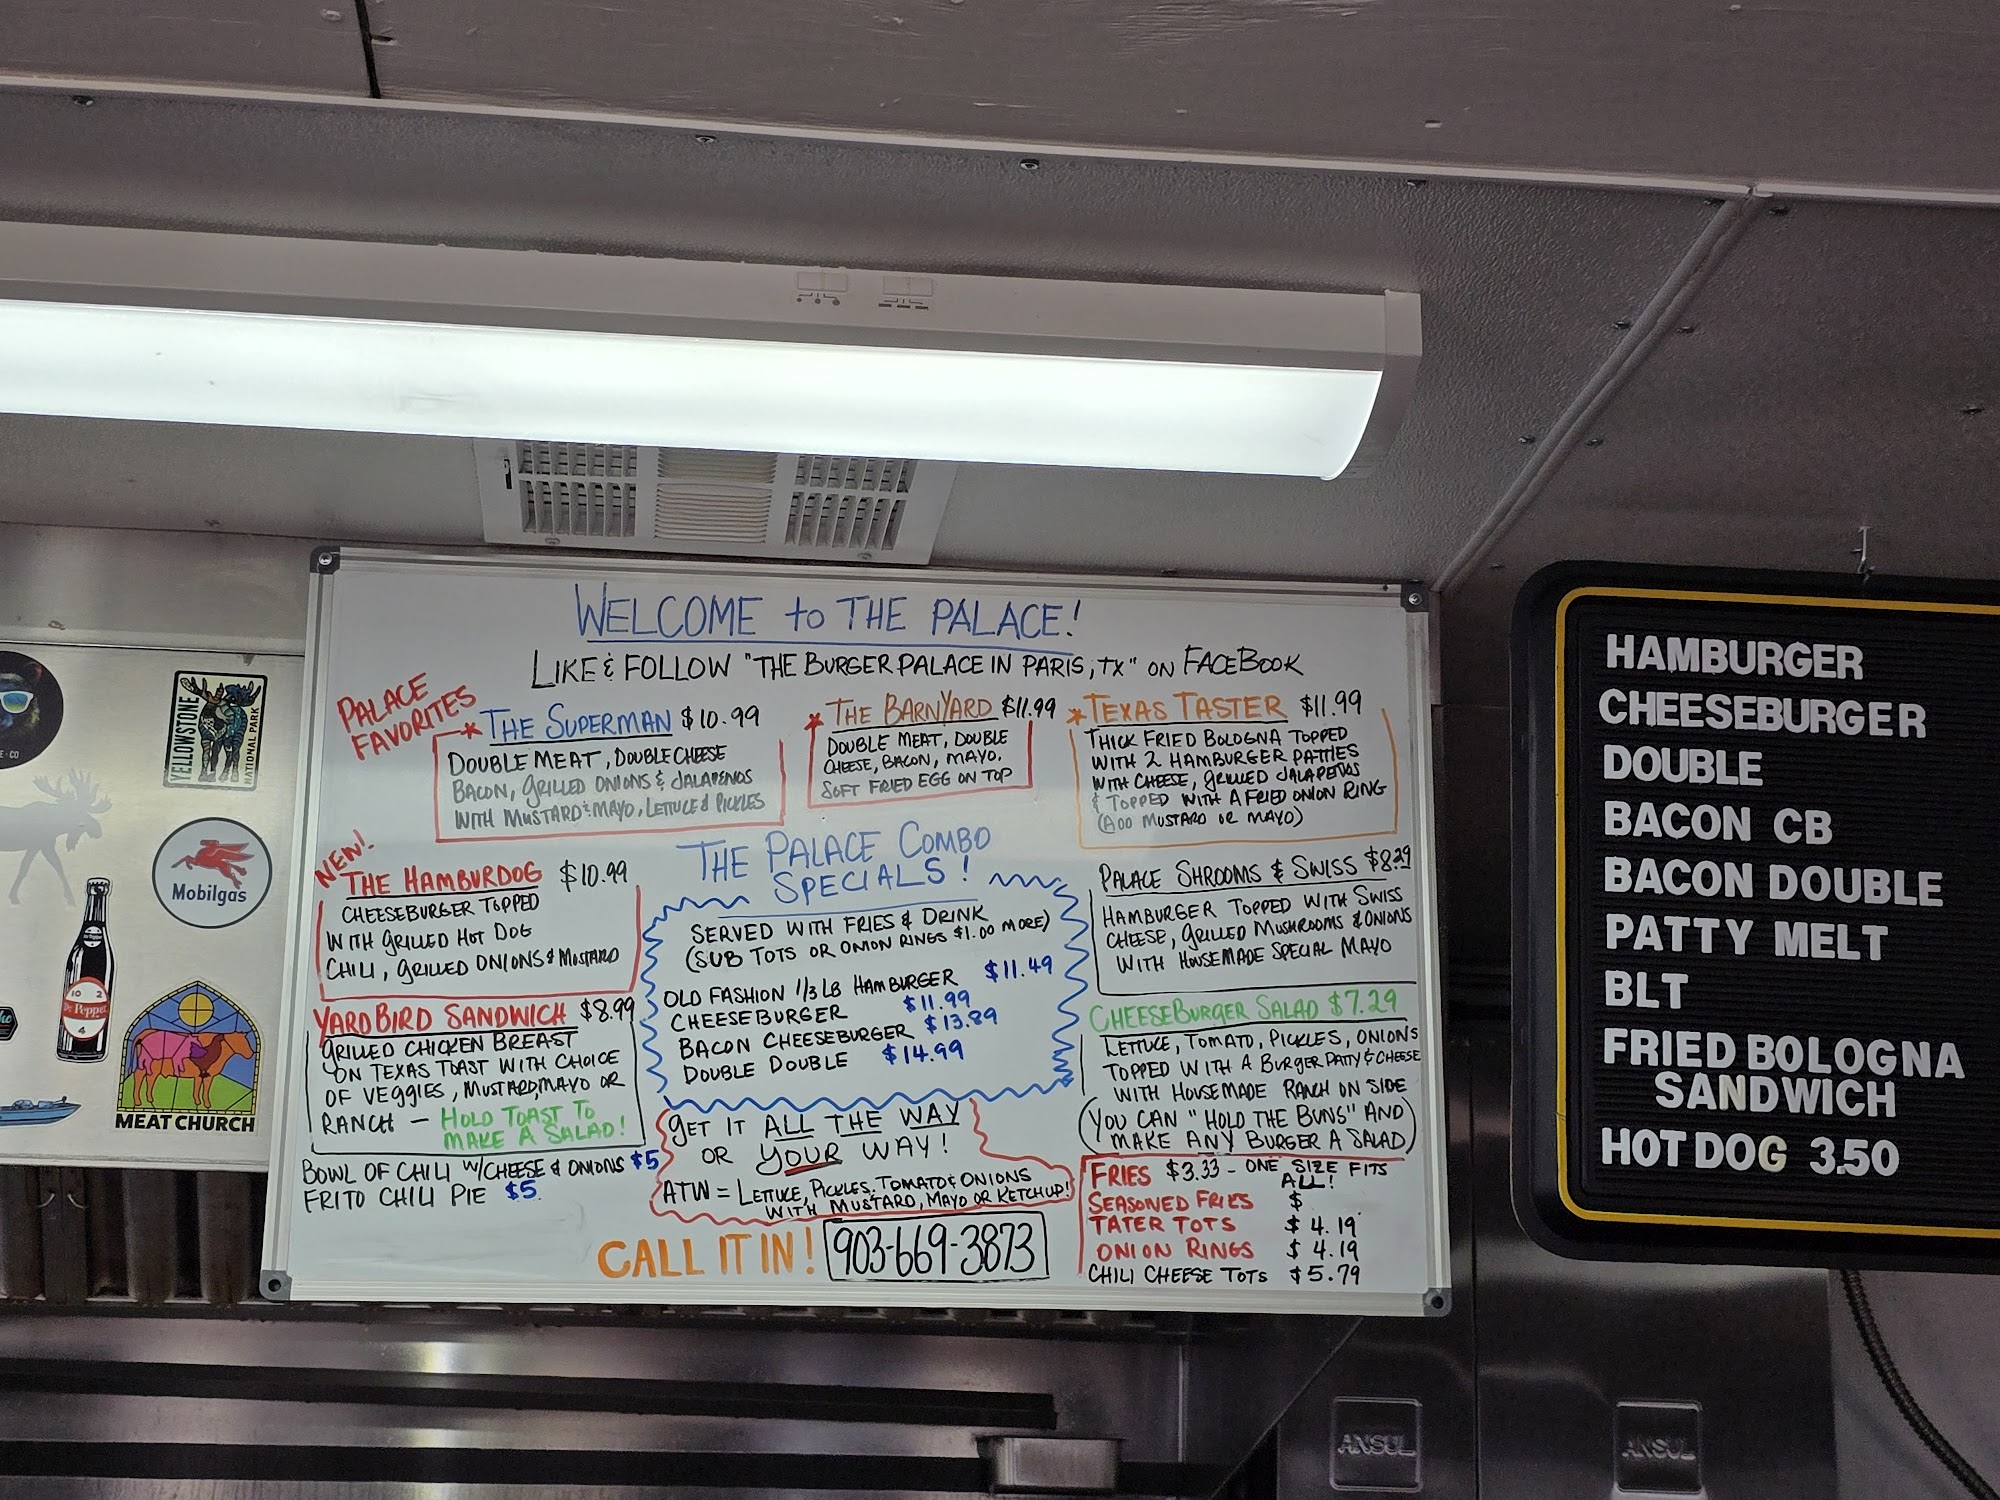 WELCOME to THE PALACE!
LIKE & FOLLOW "THE BURGER PALACE IN PARIS, TX" ON FACEBOOK
PALACE
FAVORITES
THE SUPERMAN $10.99
DOUBLE MEAT, DOUBLE CHEESE
BACON, GRILLED ONIONS & JALAPENOS
WITH MUSTARD & MAYO, LETTUCE & PICKLES
THE BARNYARD $11.99
DOUBLE MEAT, DOUBLE
CHEESE, BACON, MAYO.
SOFT FRIED EGG ON TOP
TEXAS TASTER $11.99
THICK FRIED BOLOGNA TOPPED
WITH 2 HAMBURGER PATTIES
WITH CHEESE, GRILLED JALAPENOS
& TOPPED WITH A FRIED ONION RING
(ADD MUSTARD OR MAYO)
NEW!
THE HAMBURDOG $10.99
CHEESEBURGER TOPPED
WITH GRILLED HOT DOG
CHILI, GRILLED ONIONS & MUSTARD
YARDBIRD SANDWICH $8.99
GRILLED CHICKEN BREAST
ON TEXAS TOAST WITH CHOICE
OF VEGGIES, MUSTARD, MAYO OR
RANCH - HOLD TOAST TO
MAKE A SALAD!
BOWL OF CHILI W/CHEESE & ONIONS $5
FRITO CHILI PIE $5
THE PALACE COMBO
SPECIALS!
SERVED WITH FRIES & DRINK
(SUB TOTS OR ONION RINGS $1.00 MORE)
OLD FASHION 1/3 LB HAMBURGER $11.49
CHEESEBURGER $11.99
BACON CHEESEBURGER $13.89
DOUBLE DOUBLE $14.99
GET IT ALL THE WAY
OR YOUR WAY!
ATW = LETTUCE, PICKLES, TOMATO & ONIONS
WITH MUSTARD, MAYO OR KETCHUP!
CALL IT IN! 903-669-3873
PALACE SHROOMS & SWISS $8.29
HAMBURGER TOPPED WITH SWISS
CHEESE, GRILLED MUSHROOMS & ONIONS
WITH HOUSEMADE SPECIAL MAYO
CHEESEBURGER SALAD $7.29
LETTUCE, TOMATO, PICKLES, ONIONS
TOPPED WITH A BURGER PATTY & CHEESE
WITH HOUSEMADE RANCH ON SIDE
(YOU CAN "HOLD THE BUNS" AND
MAKE ANY BURGER A SALAD)
FRIES $3.33 - ONE SIZE FITS
ALL!
SEASONED FRIES $
TATER TOTS $4.19
ONION RINGS $4.19
CHILI CHEESE TOTS $5.79
HAMBURGER
CHEESEBURGER
DOUBLE
BACON CB
BACON DOUBLE
PATTY MELT
BLT
FRIED BOLOGNA
SANDWICH
HOT DOG 3.50
YELLOWSTONE
NATIONAL PARK
Mobilgas
10 2
Dr Pepper
4
MEAT CHURCH
ANSUL
ANSUL